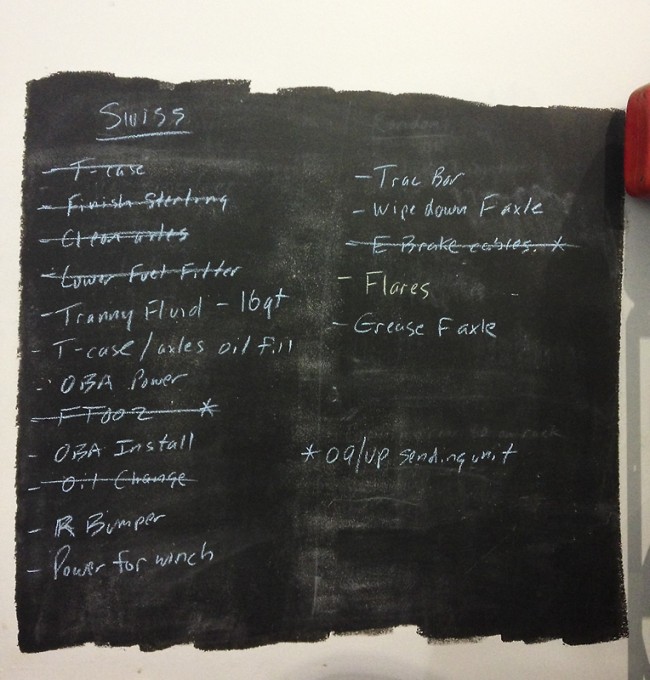 Swiss
- T-case
- Finish Steering
- Clean axles
- Lower Fuel Filter
- Tranny Fluid - 16qt
- T-case/axles oil fill
- OBA Power
- FT002 *
- OBA Install
- Oil Change
- R Bumper
- Power for winch
Random
- Trac Bar
- Wipe down F axle
- E Brake cables. *
- Flares
- Grease F axle
* OQ/UP sending unit